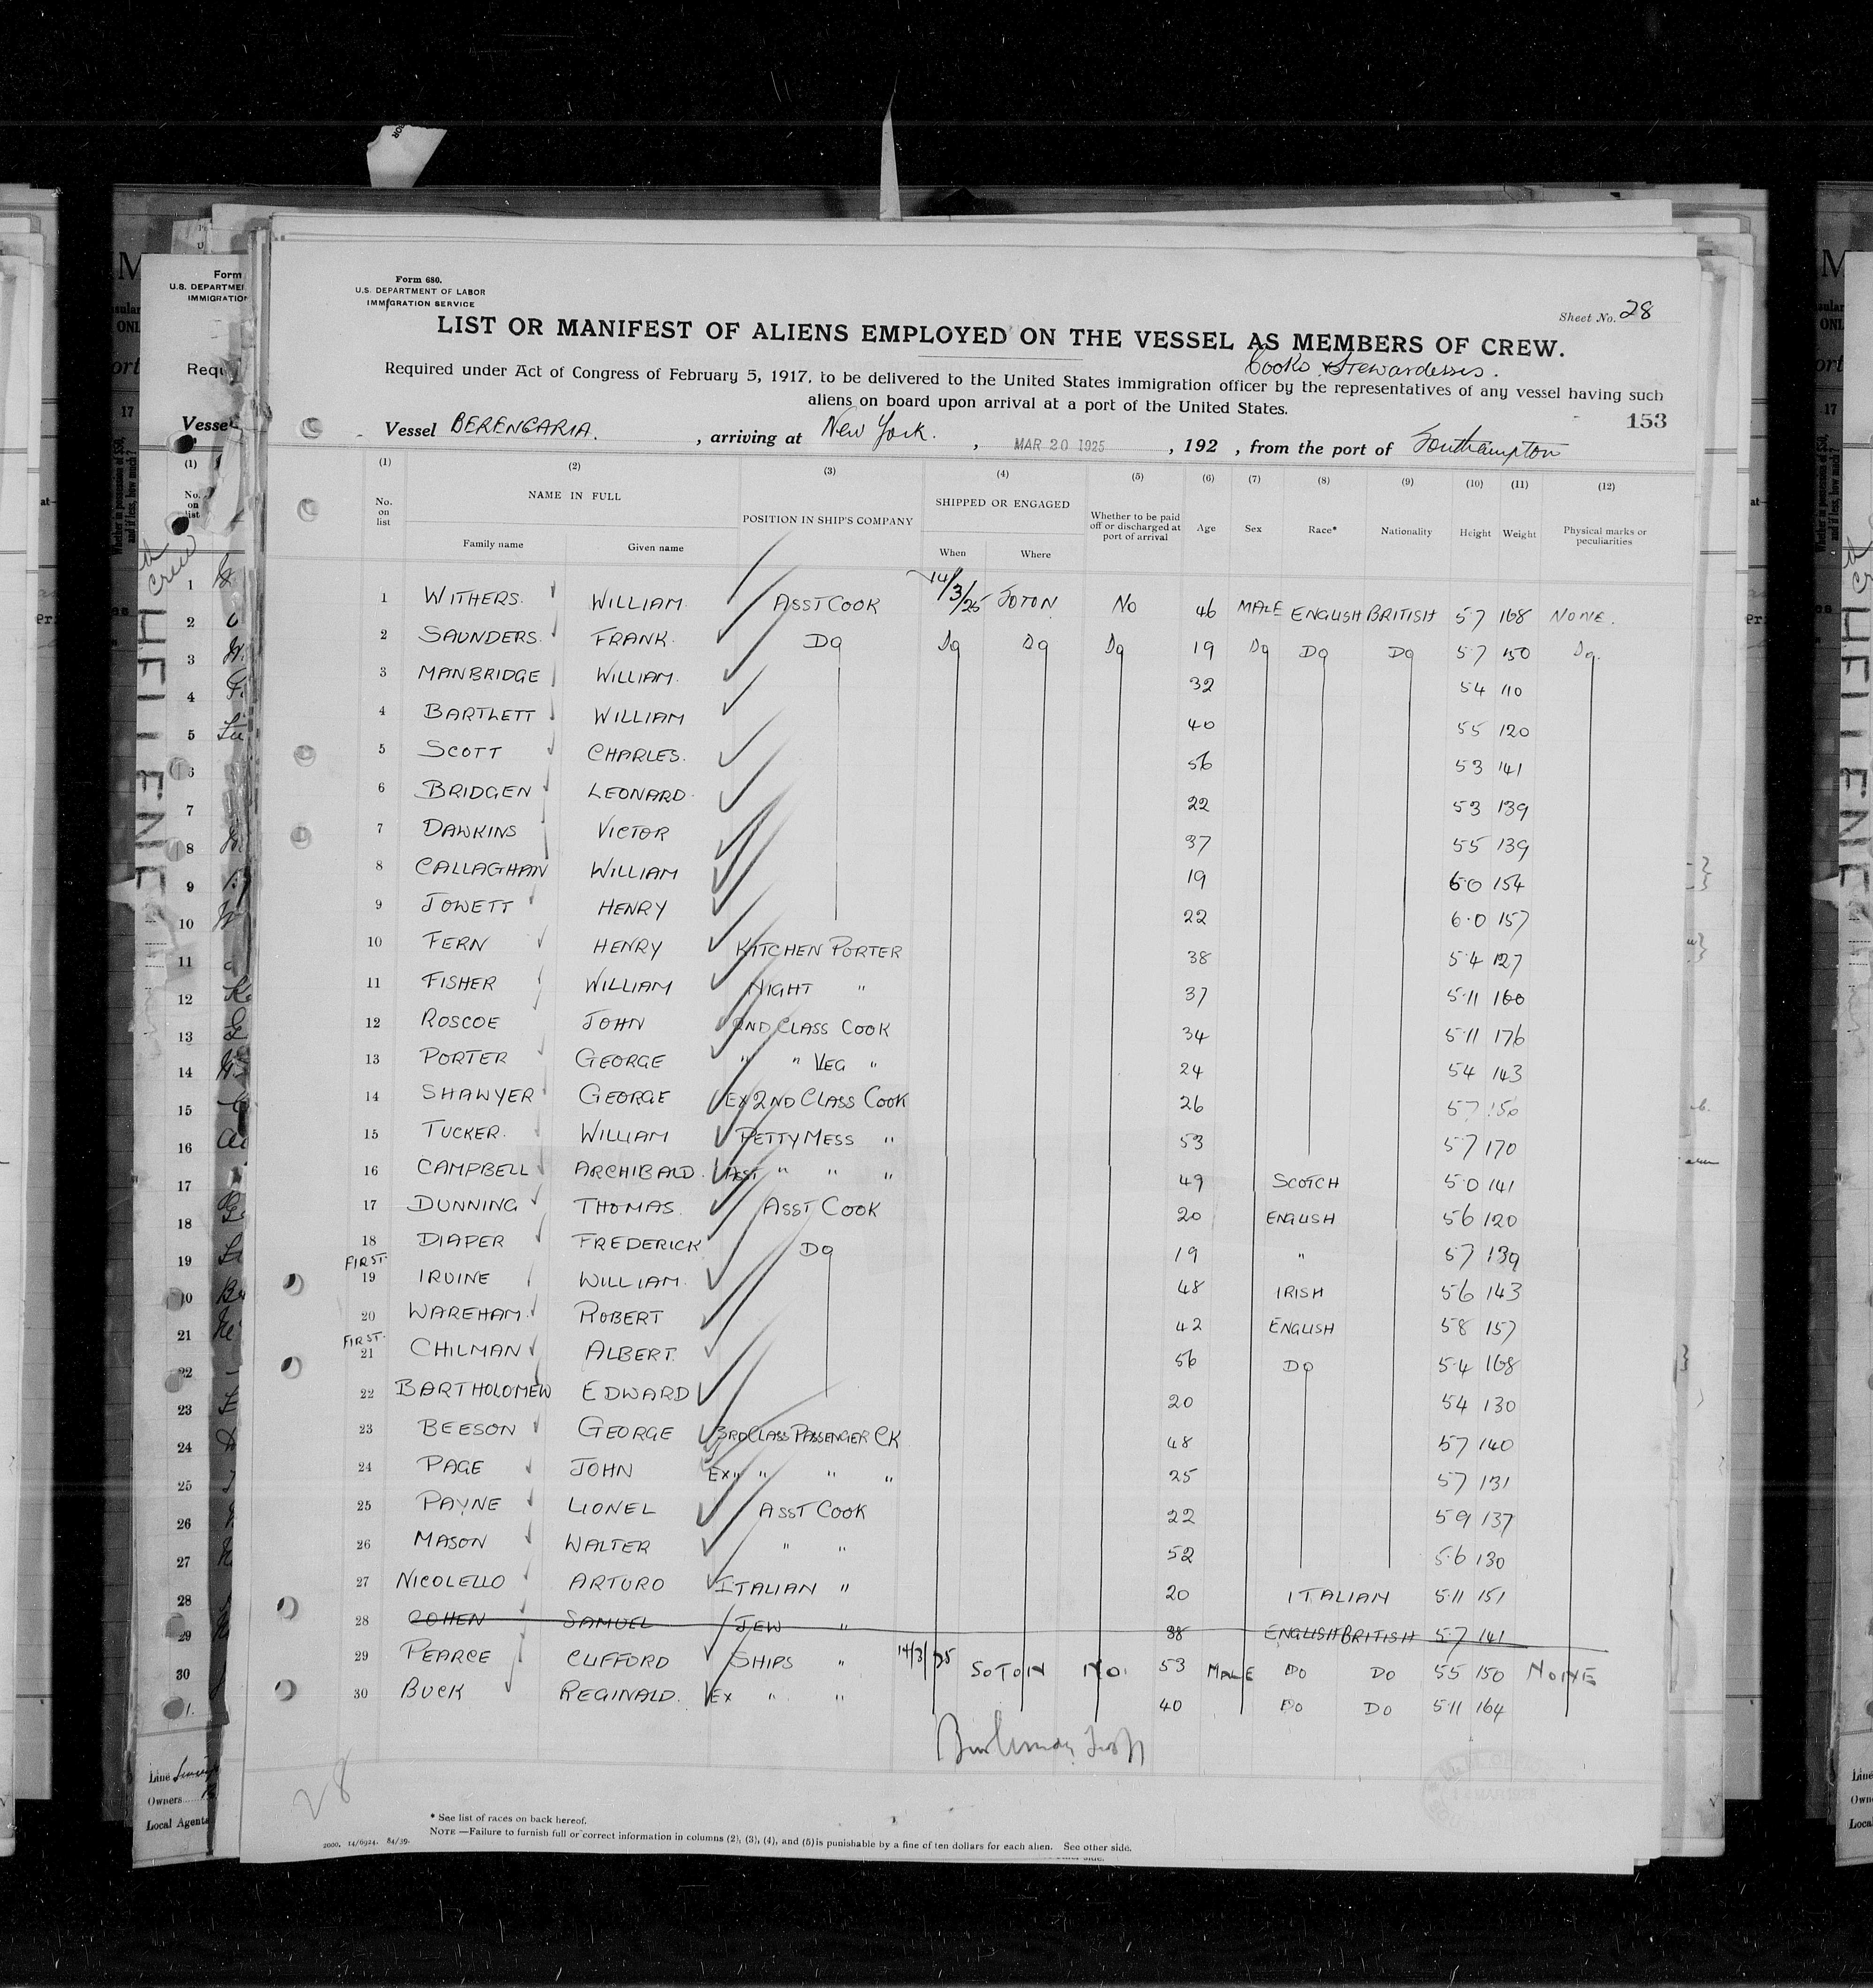 Form 680.
U.S. DEPARTMENT OF LABOR
IMMIGRATION SERVICE
Sheet No. 28
LIST OR MANIFEST OF ALIENS EMPLOYED ON THE VESSEL AS MEMBERS OF CREW.
Cooks & Stewardesses.
Required under Act of Congress of February 5, 1917, to be delivered to the United States immigration officer by the representatives of any vessel having such
aliens on board upon arrival at a port of the United States.
153
Vessel BERENGARIA. , arriving at New York. , MAR 20 1925 , 192 , from the port of Southampton
(1) (2) (3) (4) (5) (6) (7) (8) (9) (10) (11) (12)
No. on list NAME IN FULL POSITION IN SHIP'S COMPANY SHIPPED OR ENGAGED Whether to be paid off or discharged at port of arrival Age Sex Race* Nationality Height Weight Physical marks or peculiarities
Family name Given name When Where
1 WITHERS. WILLIAM. ASST COOK 14/3/25 SOTON No 46 MALE ENGLISH BRITISH 5·7 168 NONE.
2 SAUNDERS. FRANK. Do Do Do Do 19 Do Do Do 5·7 150 Do.
3 MANBRIDGE WILLIAM. 32 54 110
4 BARTLETT WILLIAM 40 55 120
5 SCOTT CHARLES. 56 53 141
6 BRIDGEN LEONARD. 22 53 139
7 DAWKINS VICTOR 37 55 139
8 CALLAGHAN WILLIAM 19 6·0 154
9 JOWETT HENRY 22 6·0 157
10 FERN HENRY KITCHEN PORTER 38 5·4 127
11 FISHER WILLIAM NIGHT " 37 5·11 160
12 ROSCOE JOHN 2ND CLASS COOK 34 5·11 176
13 PORTER GEORGE " " VEG " 24 54 143
14 SHAWYER GEORGE EX 2ND CLASS COOK 26 57 150
15 TUCKER. WILLIAM PETTY MESS " 53 57 170
16 CAMPBELL ARCHIBALD. ASST " " " 49 SCOTCH 5·0 141
17 DUNNING THOMAS. ASST COOK 20 ENGLISH 56 120
18 DIAPER FREDERICK Do 19 " 57 139
FIRST
19 IRVINE WILLIAM. 48 IRISH 56 143
20 WAREHAM. ROBERT 42 ENGLISH 58 157
FIRST.
21 CHILMAN ALBERT. 56 DO 5·4 168
22 BARTHOLOMEW EDWARD 20 54 130
23 BEESON GEORGE 3RD CLASS PASSENGER CK 48 57 140
24 PAGE JOHN EX " " " " 25 57 131
25 PAYNE LIONEL ASST COOK 22 59 137
26 MASON WALTER " " 52 5·6 130
27 NICOLELLO ARTURO ITALIAN " 20 ITALIAN 5·11 151
28 COHEN SAMUEL JEW " 38 ENGLISH BRITISH 5·7 141
29 PEARCE CLIFFORD SHIPS " 14/3/25 SOTON NO. 53 MALE DO DO 55 150 NONE
30 BUCK REGINALD. EX " " 40 DO DO 5·11 164
28
* See list of races on back hereof.
NOTE —Failure to furnish full or correct information in columns (2), (3), (4), and (5) is punishable by a fine of ten dollars for each alien. See other side.
2000. 14/6924. 84/39.